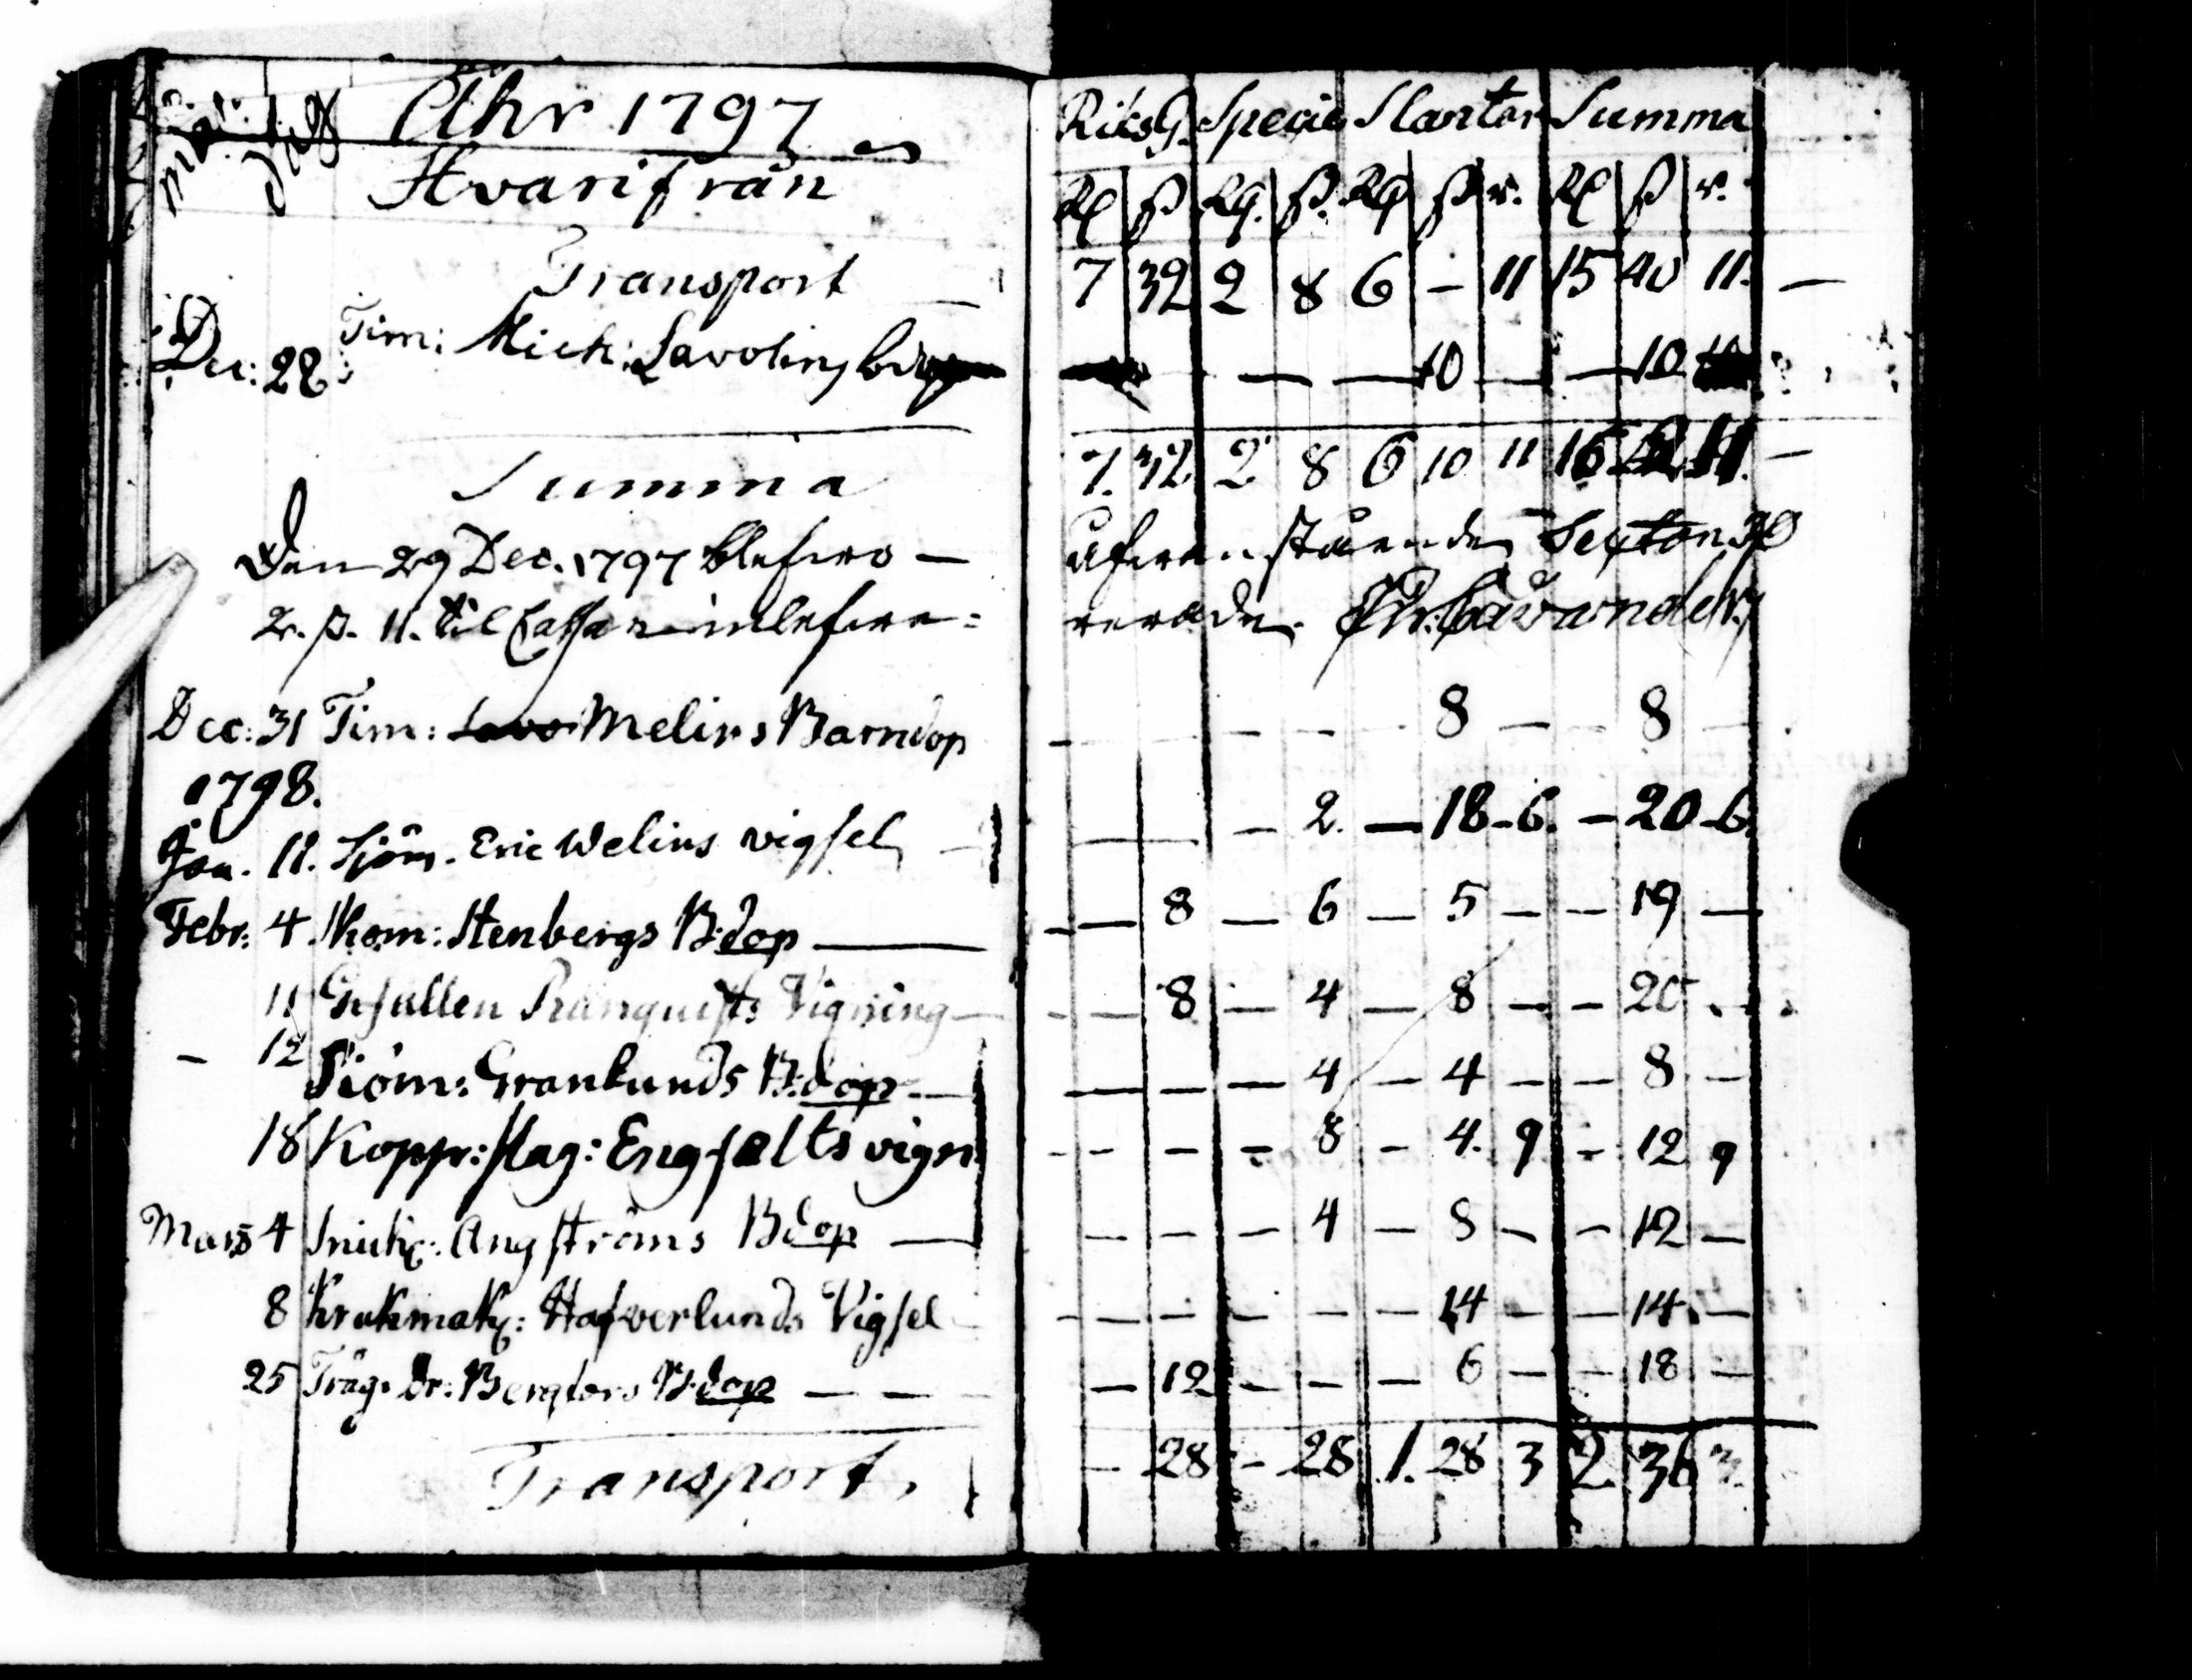 Mån: Dag Åhr 1797 RiksG. Specie Slantar Summa
Hvarifrån Rd ß Rd. ß. Rd ß r. Rd ß r.
Transport — 7 32 2 8 6 – 11 15 40 11. —
Dec: 28 Tim: Mich: Savolins — — 10 — — 10
Summa 7. 32 2 8 6 10 11 16 11. —
Den 29 Dec. 1797 blefwo — ofwanstående Sexton Rd
2. ß. 11. til Cassan inlefwe= rerade.
Dec: 31 Tim: Melins Barndop — — — — 8 — — 8 —
1798.
Jan. 11. Sjöm. Eric Welins vigsel — — — 2. — 18 – 6. — 20 – 6.
Febr: 4 Stenbergs B:dop — — 8 — 6 — 5 — — 19 —
11 Gesällen Ranquists Vigning — — 8 — 4 — 8 — — 20
– 12 Siöm: Granlunds B:dop — — — — 4 — 4 — — 8 —
18 Koppr:slag: Engfelts vign — — — 8 — 4. 9 — 12 9
Mars 4 Snick: Ångströms Bdop — — — — 4 — 8 — — 12 —
8 Krukmak: Hafverlunds Vigsel — — — — — 14 — — 14. —
25 Träg. Dr: Bergfors B:dop — — — 12 — — — 6 — — 18 —
Transport, – 28 – 28 1. 28 3 2. 36 3.